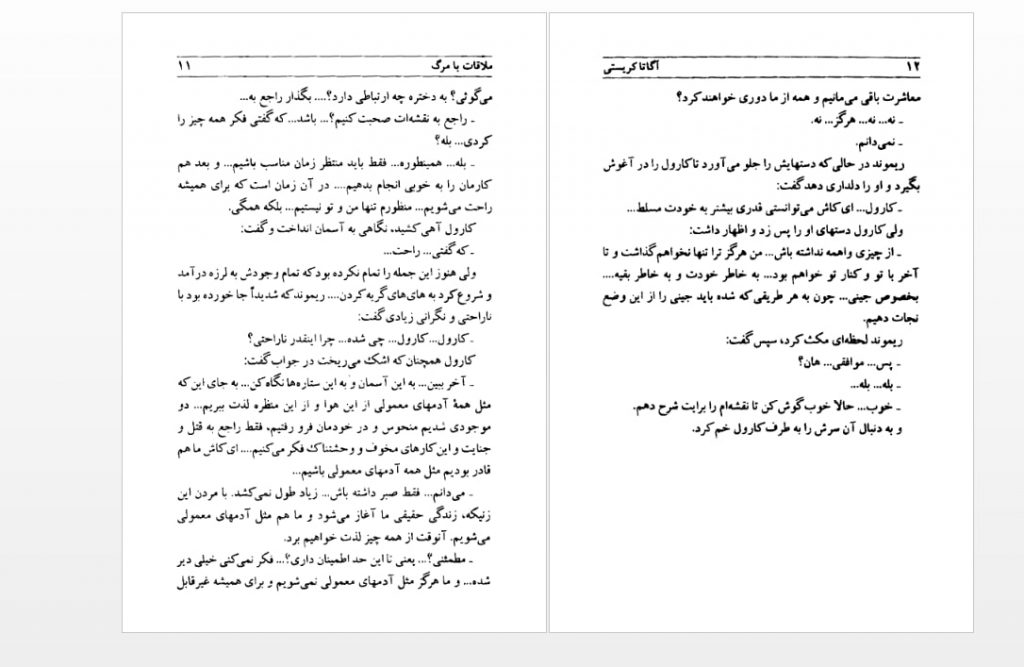 ملاقات با مرگ ۱۱
می‌گوئی؟ به دختره چه ارتباطی دارد؟.... بگذار راجع به...
ـ راجع به نقشه‌ات صحبت کنیم؟... باشد... که گفتی فکر همه چیز را
کردی... بله؟
ـ بله... همینطوره... فقط باید منتظر زمان مناسب باشیم... و بعد هم
کارمان را به خوبی انجام بدهیم.... در آن زمان است که برای همیشه
راحت می‌شویم... منظورم تنها من و تو نیستیم... بلکه همگی.
کارول آهی کشید، نگاهی به آسمان انداخت و گفت:
ـ که گفتی... راحت...
ولی هنوز این جمله را تمام نکرده بود که تمام وجودش به لرزه درآمد
و شروع کرد به های‌های گریه کردن.... ریموند که شدیداً جا خورده بود با
ناراحتی و نگرانی زیادی گفت:
ـ کارول... کارول... چی شده... چرا اینقدر ناراحتی؟
کارول همچنان که اشک می‌ریخت در جواب گفت:
ـ آخر ببین... به این آسمان و به این ستاره‌ها نگاه کن... به جای این که
مثل همهٔ آدمهای معمولی از این هوا و از این منظره لذت ببریم... دو
موجودی شدیم منحوس و در خودمان فرو رفتیم، فقط راجع به قتل و
جنایت و این کارهای مخوف و وحشتناک فکر می‌کنیم.... ای کاش ما هم
قادر بودیم مثل همه آدمهای معمولی باشیم...
ـ می‌دانم... فقط صبر داشته باش... زیاد طول نمی‌کشد. با مردن این
زنیکه، زندگی حقیقی ما آغاز می‌شود و ما هم مثل آدمهای معمولی
می‌شویم. آنوقت از همه چیز لذت خواهیم برد.
ـ مطمئنی؟... یعنی تا این حد اطمینان داری؟... فکر نمی‌کنی خیلی دیر
شده... و ما هرگز مثل آدمهای معمولی نمی‌شویم و برای همیشه غیرقابل
۱۲ آگاتا کریستی
معاشرت باقی می‌مانیم و همه از ما دوری خواهند کرد؟
ـ نه... نه... هرگز... نه.
ـ نمی‌دانم.
ریموند در حالی که دستهایش را جلو می‌آورد تا کارول را در آغوش
بگیرد و او را دلداری دهد گفت:
ـ کارول... ای کاش می‌توانستی قدری بیشتر به خودت مسلط...
ولی کارول دستهای او را پس زد و اظهار داشت:
ـ از چیزی واهمه نداشته باش... من هرگز ترا تنها نخواهم گذاشت و تا
آخر با تو و کنار تو خواهم بود... به خاطر خودت و به خاطر بقیه....
بخصوص جینی... چون به هر طریقی که شده باید جینی را از این وضع
نجات دهیم.
ریموند لحظه‌ای مکث کرد، سپس گفت:
ـ پس... موافقی... هان؟
ـ بله... بله...
ـ خوب... حالا خوب گوش کن تا نقشه‌ام را برایت شرح دهم.
و به دنبال آن سرش را به طرف کارول خم کرد.